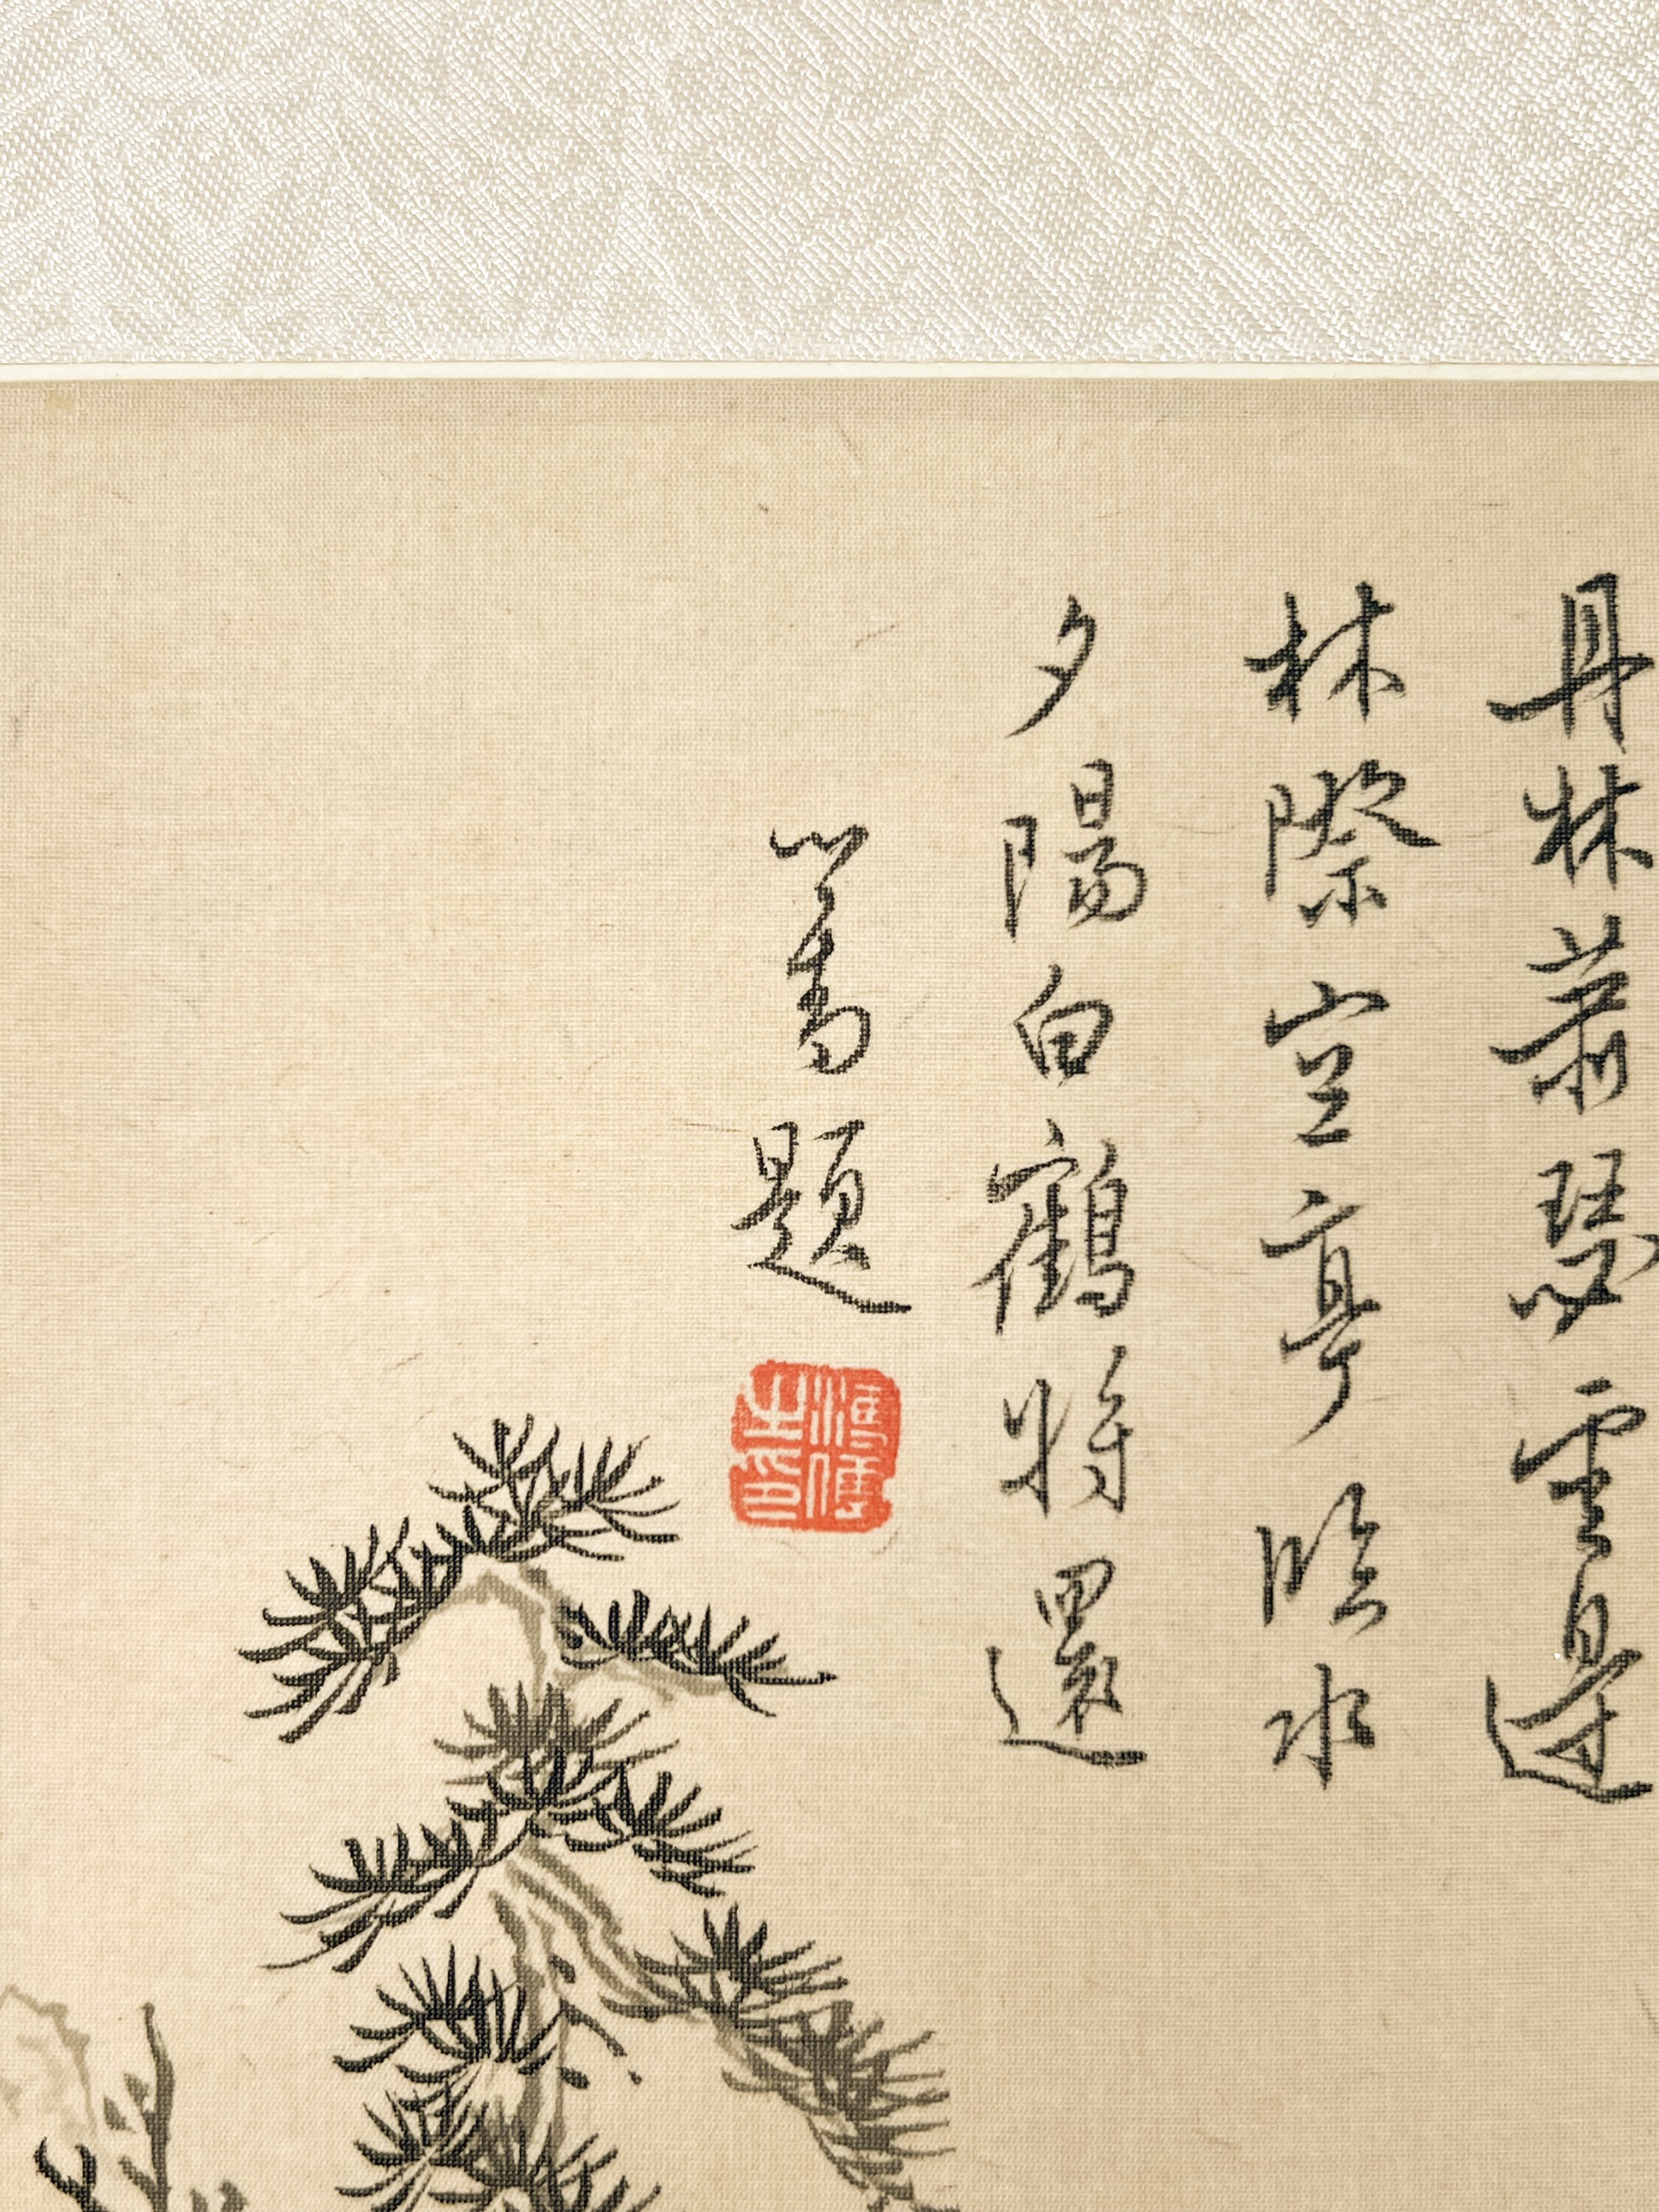 丹林蕭瑟雲邊
林際空亭臨水
夕陽白鶴將還
心畬題
溥儒之印